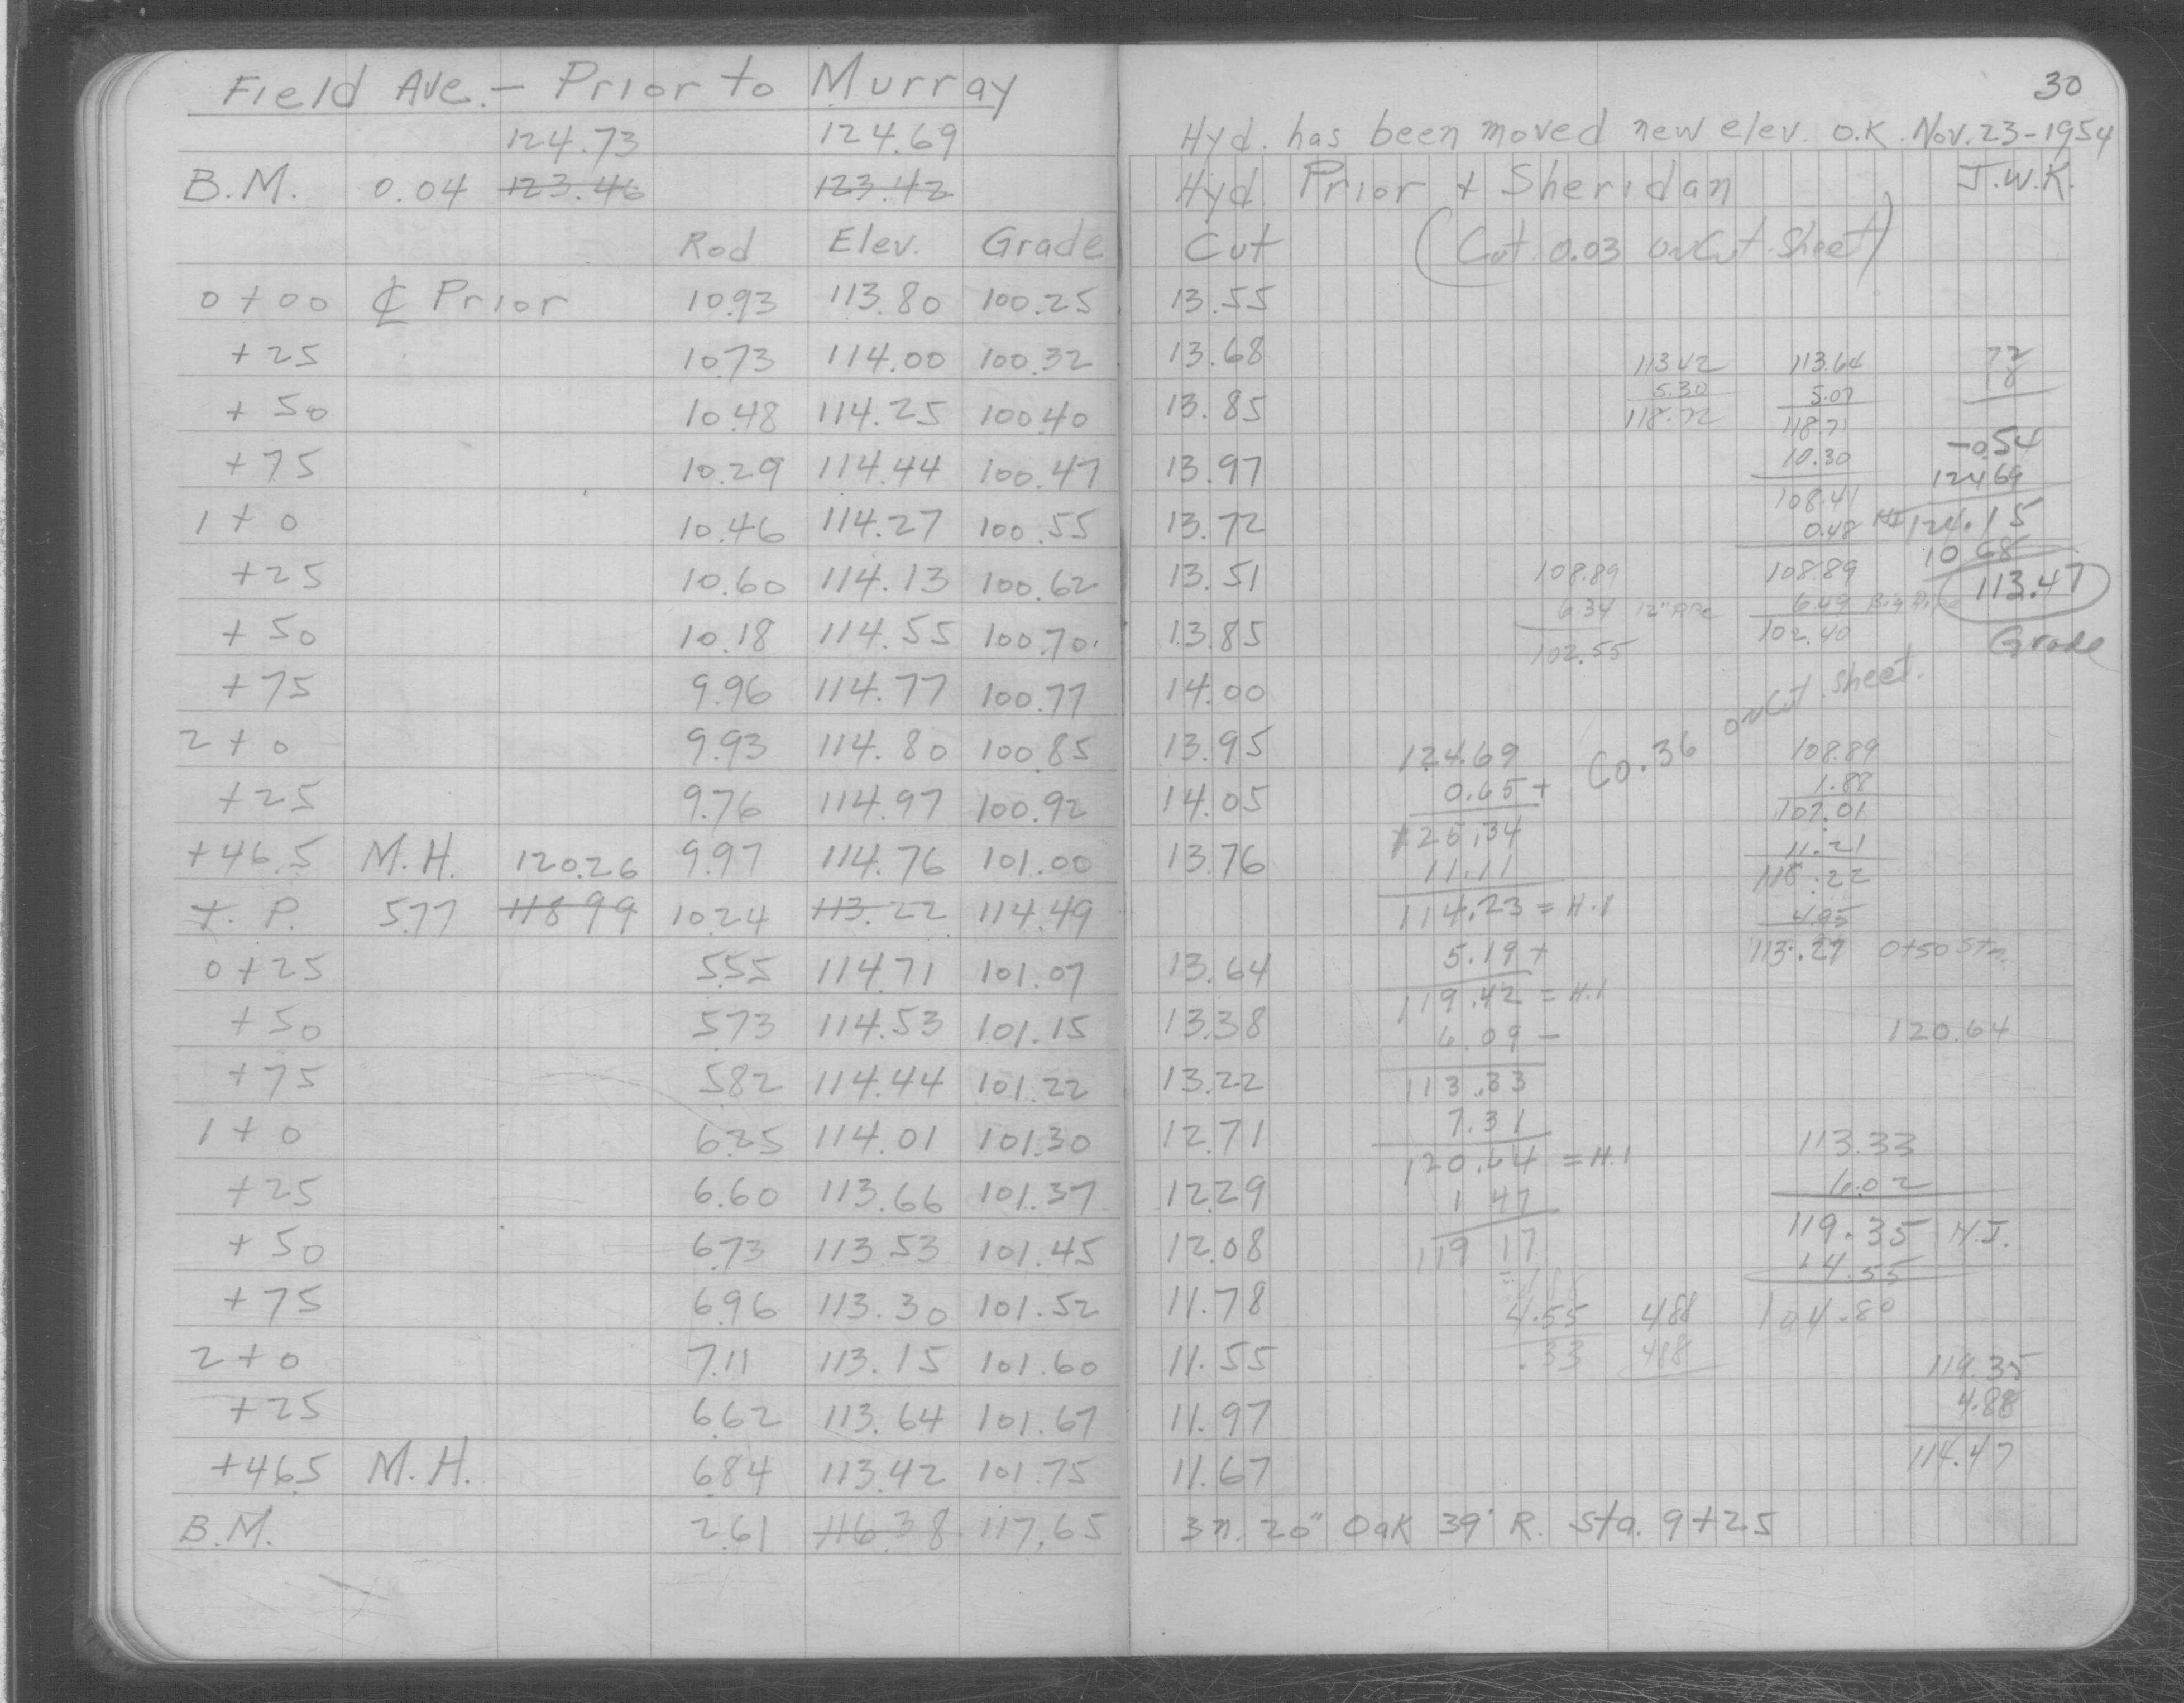 Field Ave. - Prior to Murray
124.73 124.69
B.M. 0.04 123.46 123.42
Rod Elev. Grade
0+00 ℄ Prior 10.93 113.80 100.25
+25 10.73 114.00 100.32
+50 10.48 114.25 100.40
+75 10.29 114.44 100.47
1+0 10.46 114.27 100.55
+25 10.60 114.13 100.62
+50 10.18 114.55 100.70
+75 9.96 114.77 100.77
2+0 9.93 114.80 100.85
+25 9.76 114.97 100.92
+46.5 M.H. 120.26 9.97 114.76 101.00
T.P. 5.77 118.99 10.24 113.22 114.49
0+25 5.55 114.71 101.07
+50 5.73 114.53 101.15
+75 5.82 114.44 101.22
1+0 6.25 114.01 101.30
+25 6.60 113.66 101.37
+50 6.73 113.53 101.45
+75 6.96 113.30 101.52
2+0 7.11 113.15 101.60
+25 6.62 113.64 101.67
+46.5 M.H. 6.84 113.42 101.75
B.M. 2.61 116.38 117.65
30
Hyd. has been moved new elev. O.K. Nov. 23-1954
Hyd. Prior + Sheridan J.W.K.
Cut (Cut 0.03 on Cut Sheet)
13.55
13.68
13.85
13.97
13.72
13.51
13.85
14.00
13.95
14.05
13.76
13.64
13.38
13.22
12.71
12.29
12.08
11.78
11.55
11.97
11.67
3 n. 20" Oak 39' R. Sta. 9+25
113.42
5.30
118.72
113.64
5.07
118.71
10.30
108.41
0.48
108.89
6.49 Big Pipe
102.40
72
18
-0.54
124.69
HI 124.15
10.68
113.47
Grade
108.89
6.34 12" Pipe
102.55
on Cut Sheet.
Co.36
124.69
0.65+
125.34
11.11
114.23 = H.I
5.19+
119.42 = H.I
6.09-
113.33
7.31
120.64 = H.I
1 47
119 17
4.55
.33
488
488
108.89
1.88
107.01
11.21
118.22
4.95
113.27 0+50 Stn.
120.64
113.33
6.02
119.35 H.I.
14.55
104.80
119.35
4.88
114.47